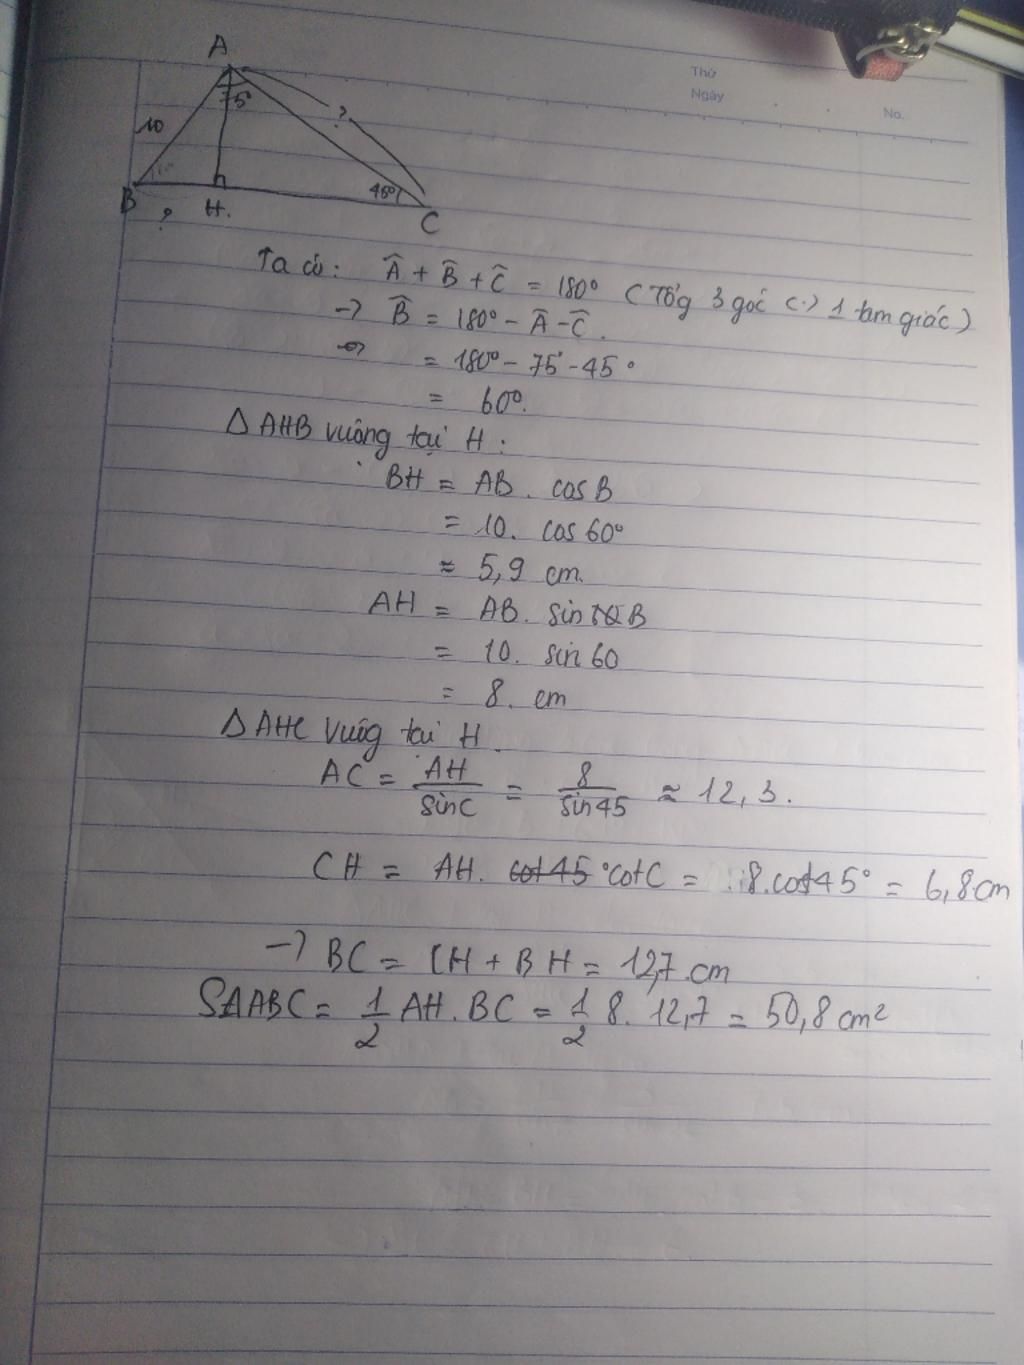 Thứ
Ngày
No.
A
75°
?
10
45°
B
?
H.
C
Ta có: Â + B̂ + Ĉ = 180° ( Tổg 3 góc (.) 1 tam giác )
→ B̂ = 180° - Â - Ĉ.
= 180° - 75° - 45°
= 60°.
Δ AHB vuông tại H :
BH = AB . cos B
= 10. cos 60°
≈ 5,9 cm.
AH = AB. sin B
= 10. sin 60
= 8. cm
Δ AHC vuôg tại H.
AC = AH/sin C = 8/sin 45 ≈ 12,3.
CH = AH. cot 45° cot C = 8.cot 45° = 6,8 cm
→ BC = CH + BH = 12,7 cm
SΔABC = 1/2 AH. BC = 1/2 8. 12,7 = 50,8 cm²